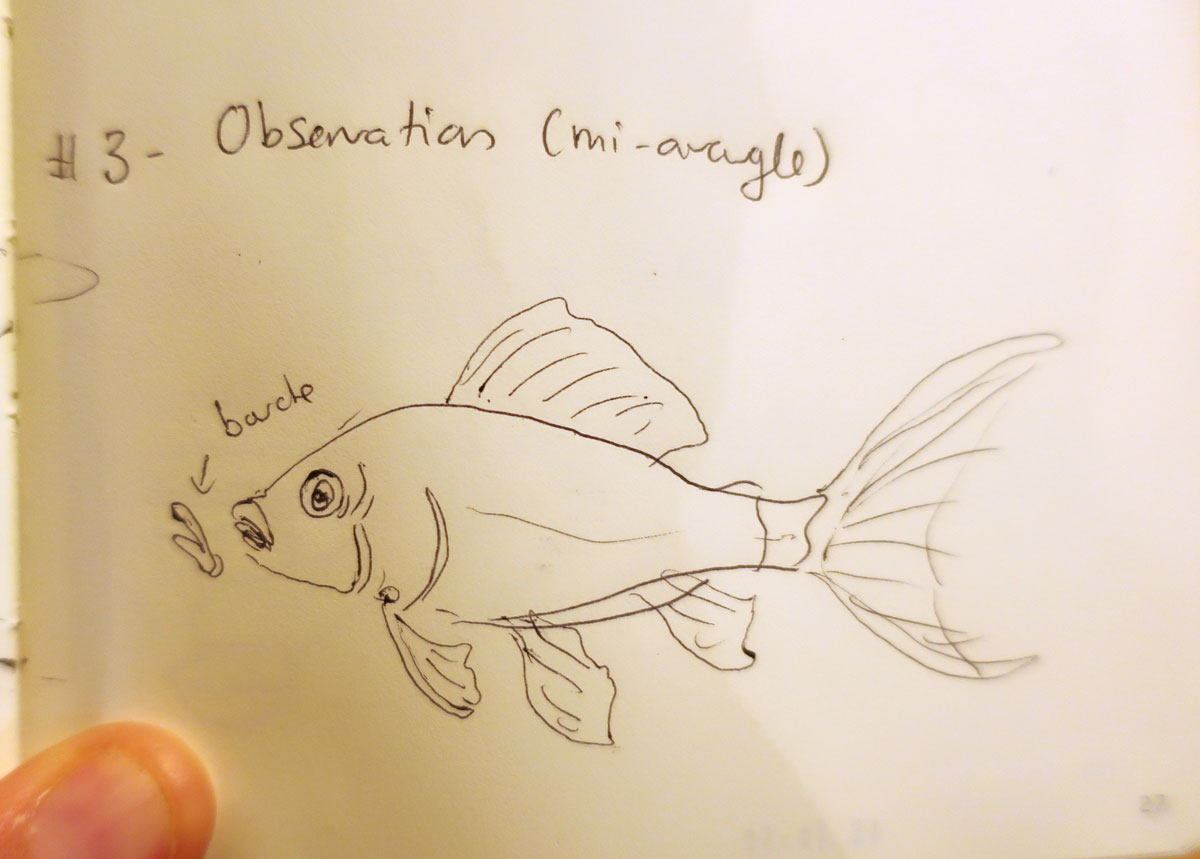 #3- Observation (mi-aveugle)
bouche
27